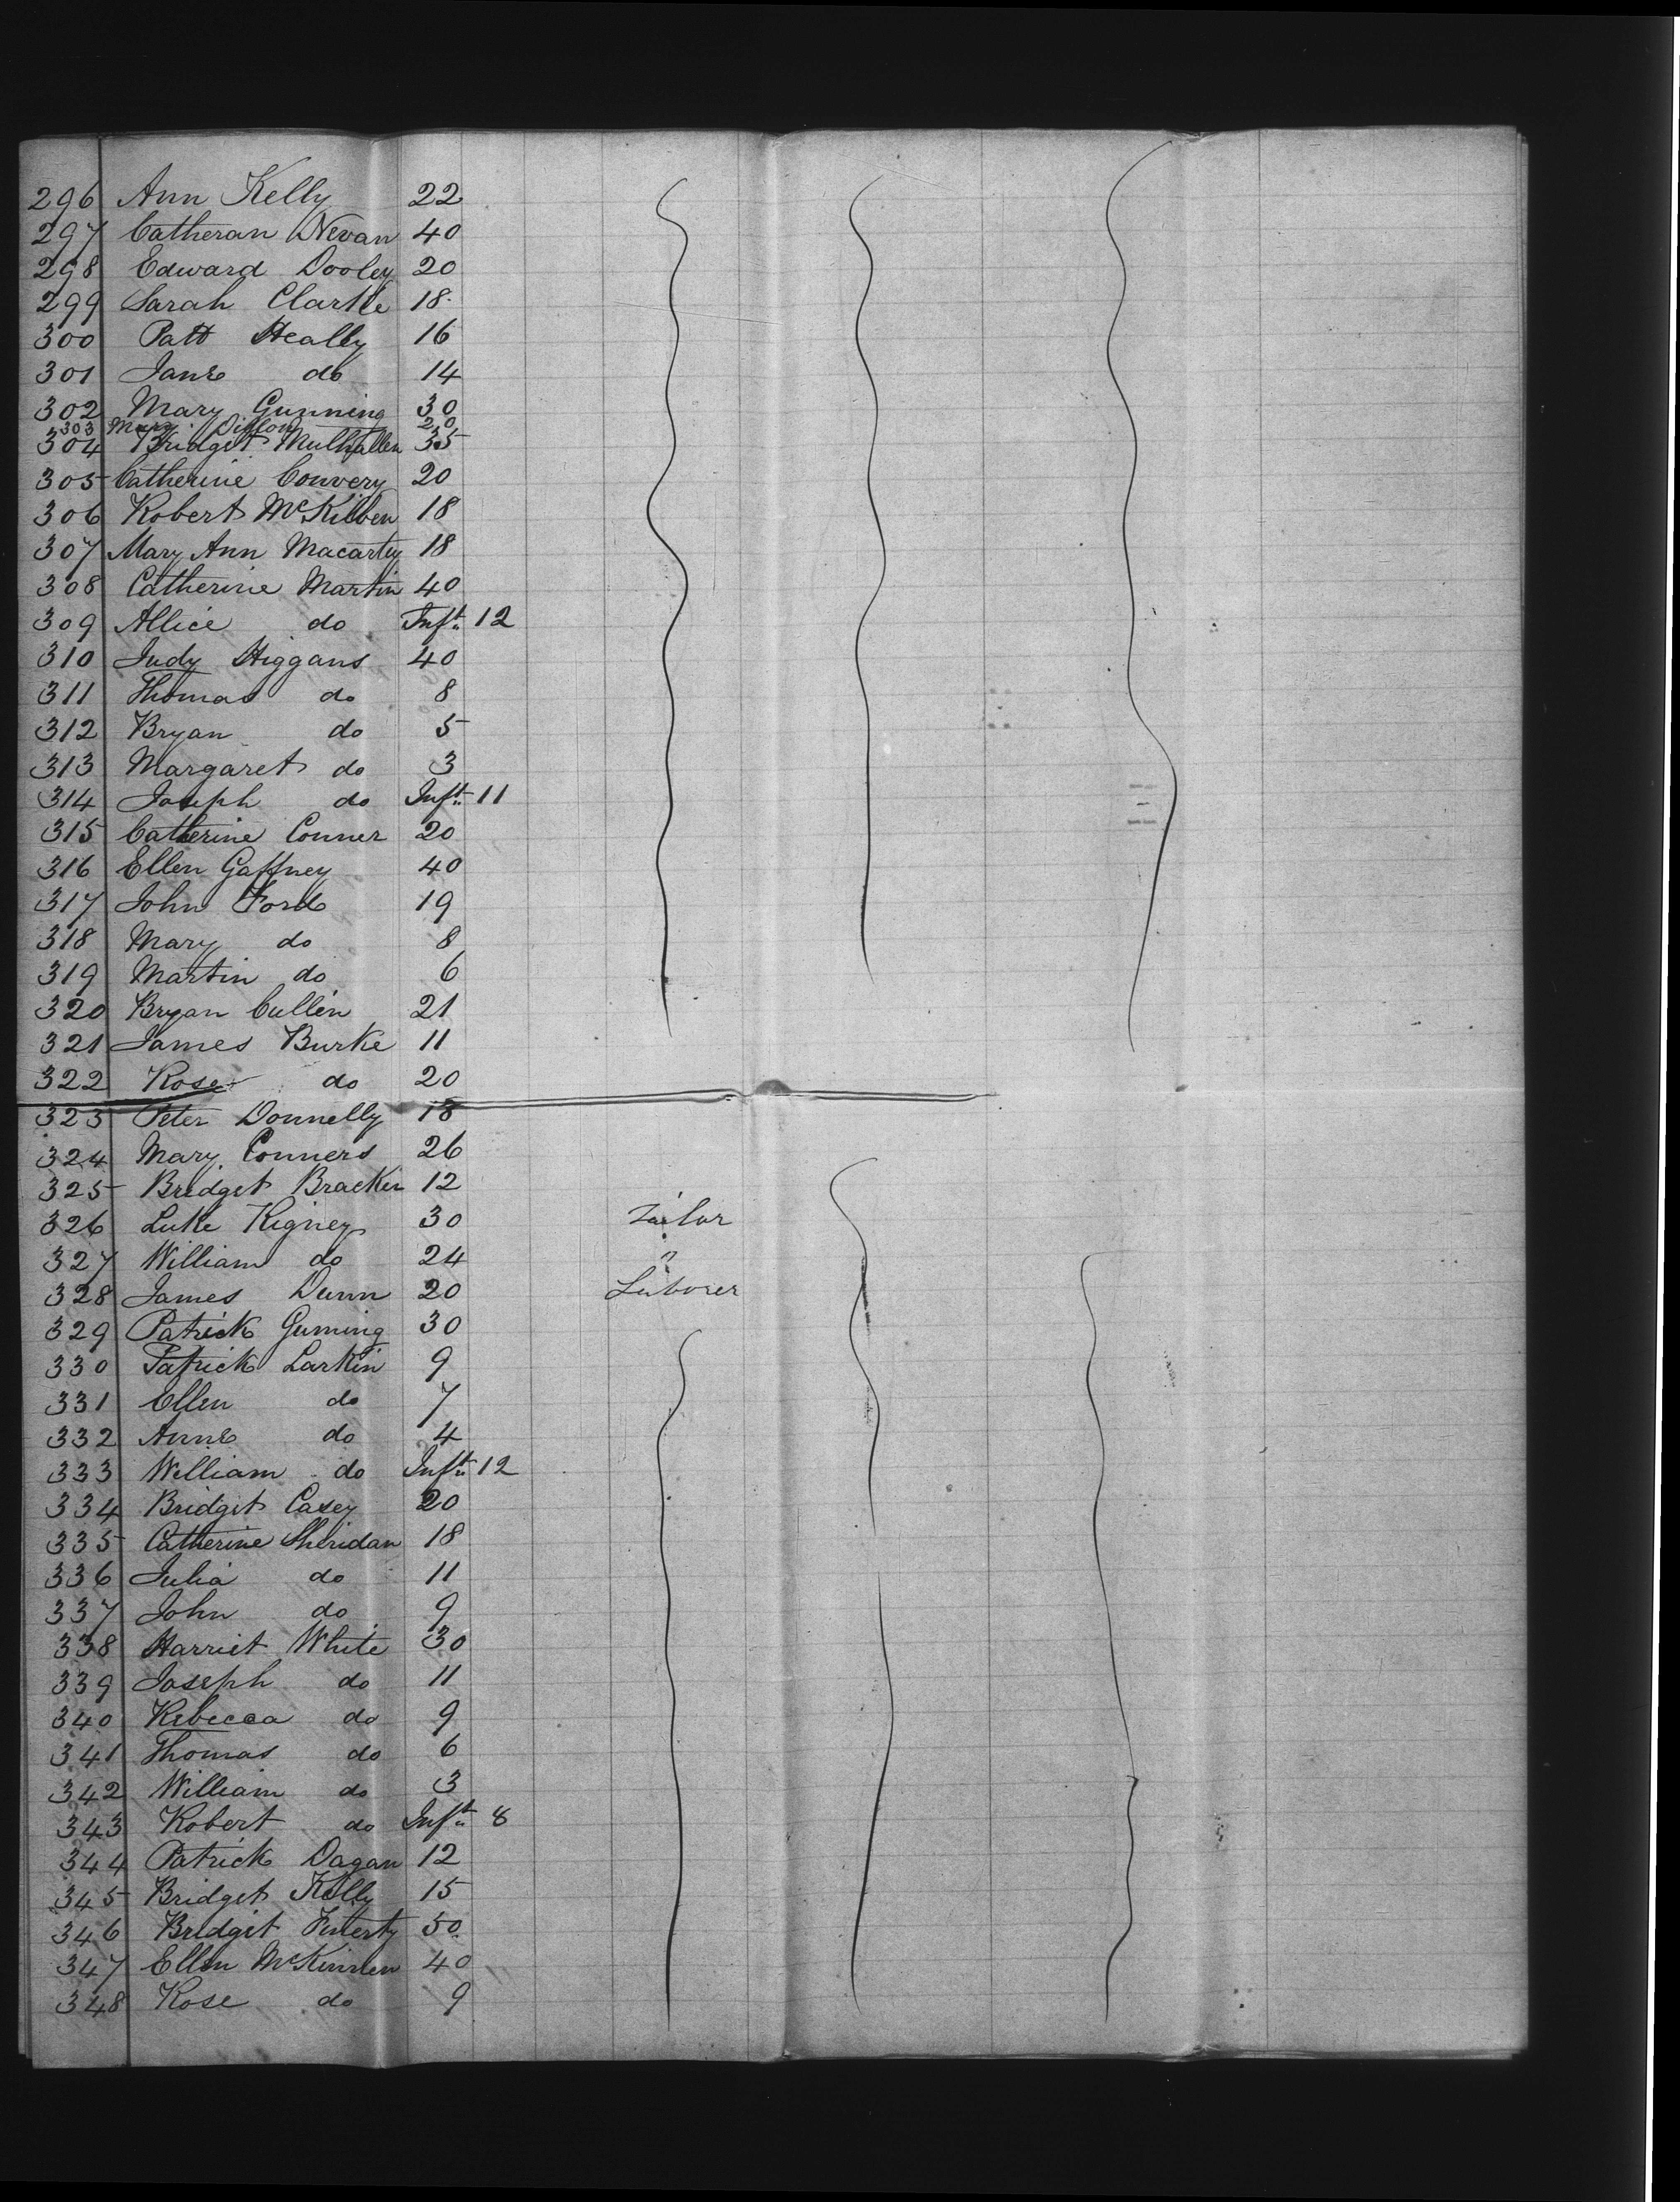 296 Ann Kelly 22
297 Catheran Nevan 40
298 Edward Dooley 20
299 Sarah Clarke 18
300 Patt Heally 16
301 Jane do 14
302 Mary Gunning 30
303 Mary Dillon 20
304 Bridget Mulhallen 35
305 Catherine Convery 20
306 Robert McKibben 18
307 Mary Ann Macartey 18
308 Catherine Martin 40
309 Allice do Inft. 12
310 Judy Higgans 40
311 Thomas do 8
312 Bryan do 5
313 Margaret do 3
314 Joseph do Inft. 11
315 Catherine Conner 20
316 Ellen Gaffney 40
317 John Ford 19
318 Mary do 8
319 Martin do 6
320 Bryan Cullen 21
321 James Burke 11
322 Rose do 20
323 Peter Donnelly 18
324 Mary Conners 26
325 Bridget Bracken 12
326 Luke Rigney 30 Tailor
327 William do 24 "
328 James Dunn 20 Laborer
329 Patrick Guming 30
330 Patrick Larkin 9
331 Ellen do 7
332 Anne do 4
333 William do Inft. 12
334 Bridget Casey 20
335 Catherine Sheridan 18
336 Julia do 11
337 John do 9
338 Harriet White 30
339 Joseph do 11
340 Rebecca do 9
341 Thomas do 6
342 William do 3
343 Robert do Inft. 8
344 Patrick Dagan 12
345 Bridget Kelly 15
346 Bridget 50
347 Ellen McKinnen 40
348 Rose do 9